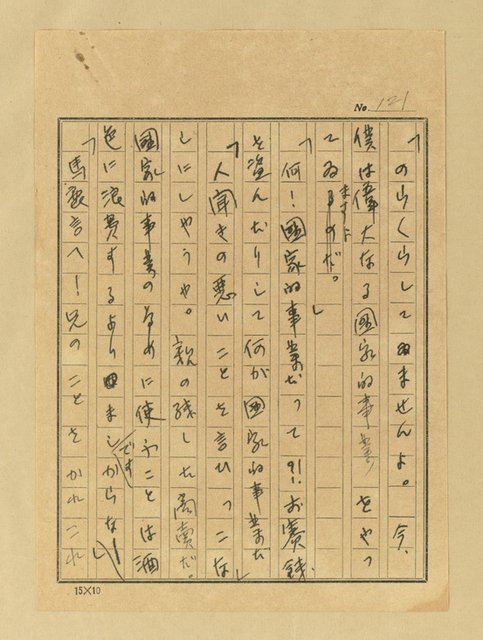 No. 121
「のらくらしてゐませんよ。今、
僕は偉大なる國家的事業をやつ
てゐますよ
てゐるのだ。」
「何！國家的事業だつて？！お賽錢
を盗んだりして何が國家的事業だ」
「人聞きの悪いことを言ひつこな
しにしやうや。親の残した商賣だ。
國家的事業のために使ふことは酒
色に浪費するより ましですからな」
「馬鹿言へ！兄のことをかれこれ
15×10